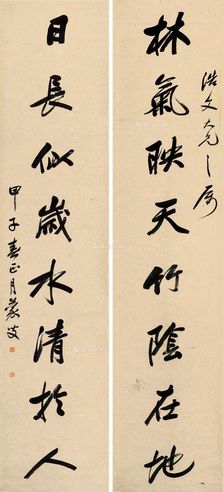 浩文大兄之属
林氣映天竹陰在地
日長似歲水清於人
甲子春正月蔡艾